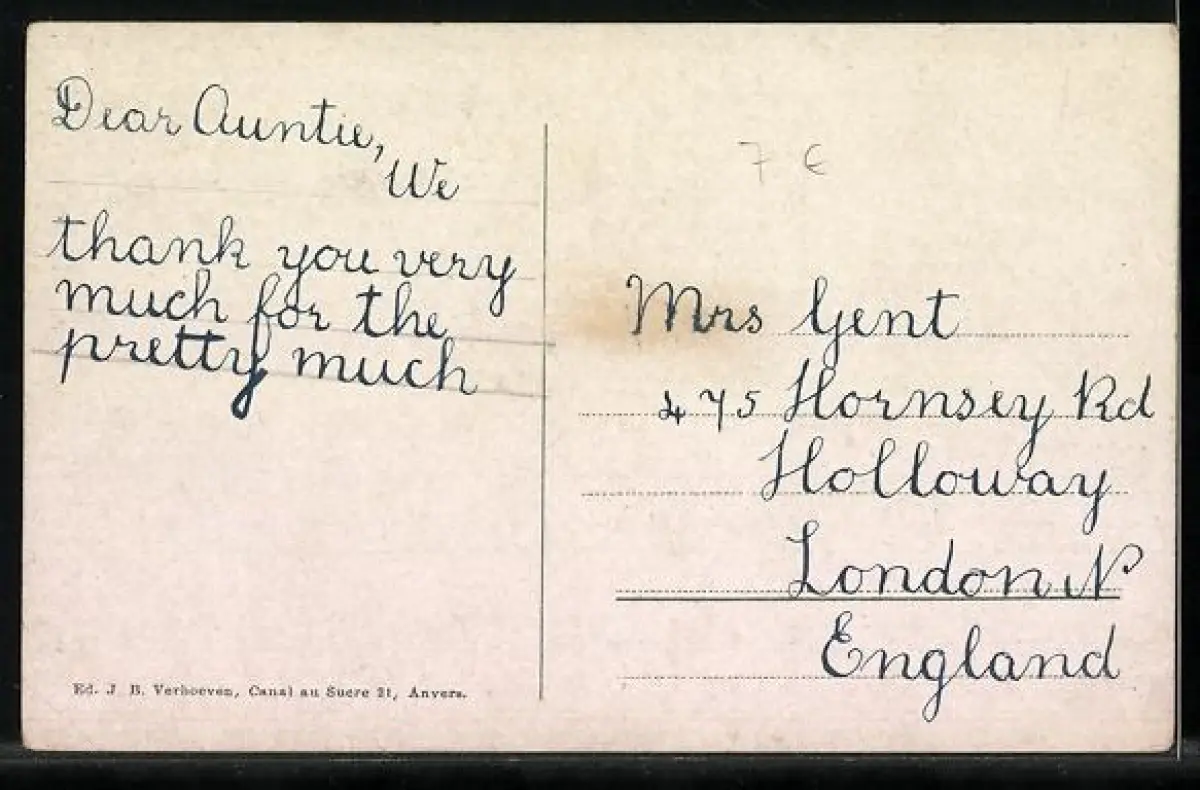 Dear Auntie,
We
thank you very
much for the
pretty much
Ed. J. B. Verhoeven, Canal au Sucre 21, Anvers.
7 €
Mrs Gent
475 Hornsey Rd
Holloway
London N
England